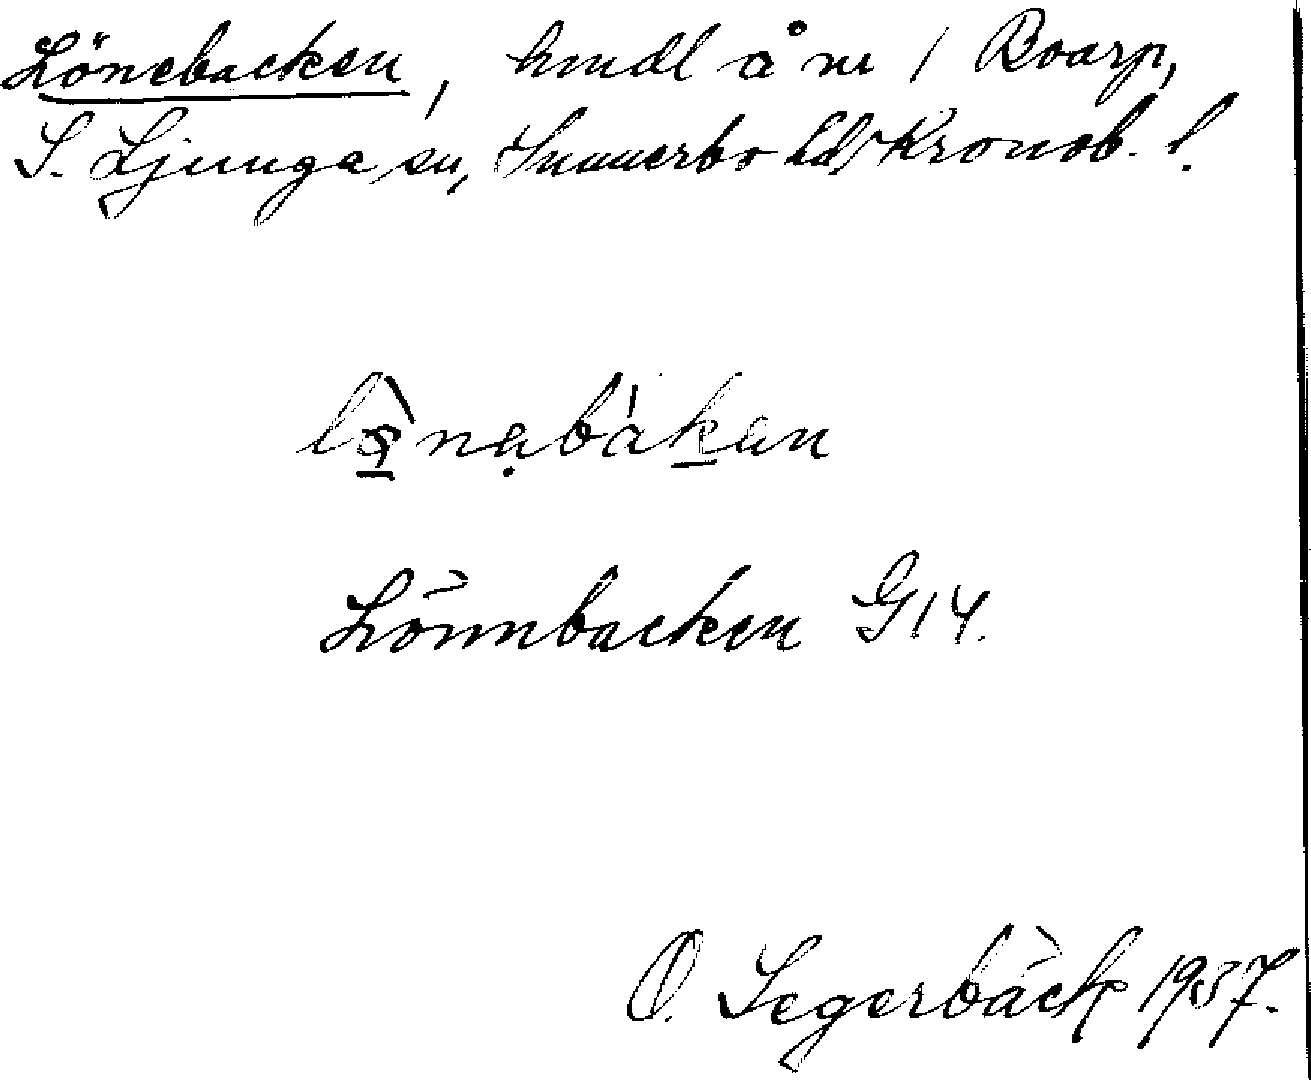 Lönebacken, hmdl å nr 1 Boarp,
S. Ljunga sn, Sunnerbo hd, Kronob. l.
lø̀nabákan
Lönnbacken G14.
O. Segerbäck 1937.